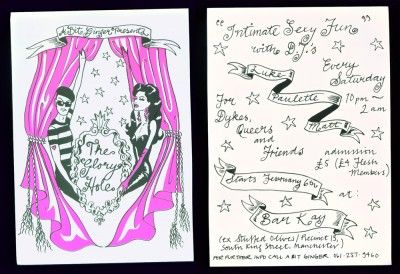 A Bit Ginger Presents
The
Glory
Hole
"Intimate Sexy Fun"
with D.J.'s
Luke
Paulette
Matt
Every
Saturday
10pm ~
2am
For
Dykes,
Queers
and
Friends
admission
£5 (£4 Flesh
Members)
Starts February 6th
at:
Bar Kay
(ex Stuffed Olives/Precinct 13,
South King Street, Manchester)
FOR FURTHER INFO CALL A BIT GINGER 061-237-5960